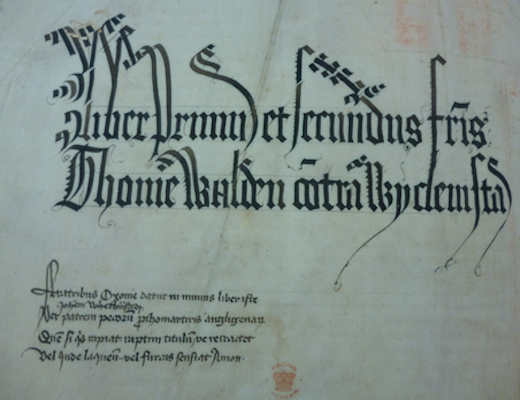 Liber primus et secundus fr̄is
Thome Walden cōtra Wyclewistas
Fratribus Oxonie datur in munus liber iste
Johem Whethamstede
Per patrem pecorū prothomartiris angligenarū
Quē si q's rapiat raptim titulūve retractet
Vel Iude laqueū vel furcas senciat Amen